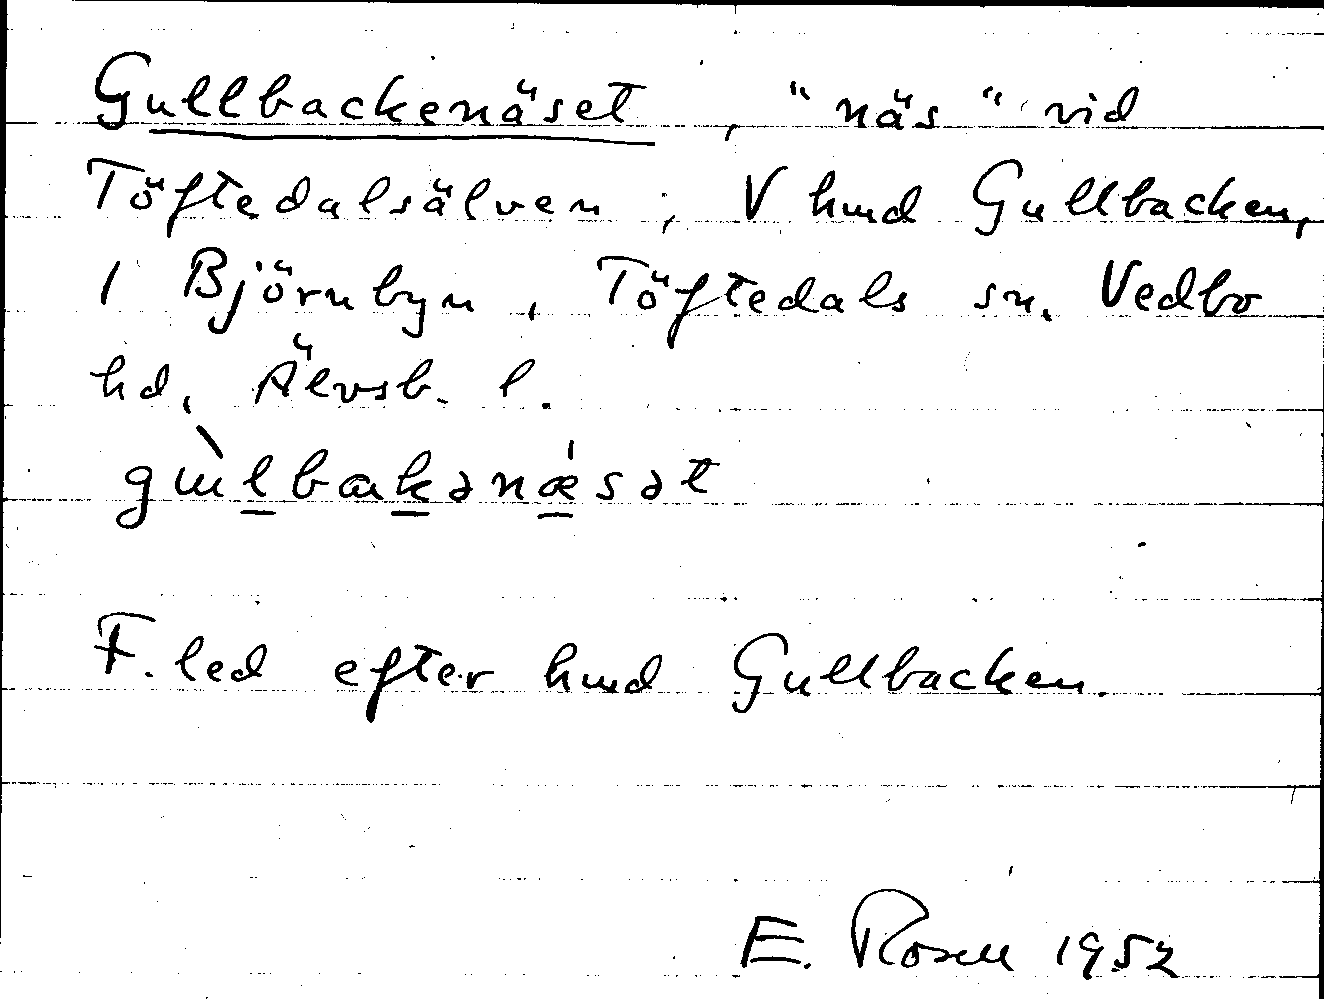 Gullbackenäset, "näs" vid
Töftedalsälven, V hmd Gullbacken,
1 Björnbyn, Töftedals sn. Vedbo
hd, Älvsb. l.
gɯ̀lbakənǽsət
F. led efter hmd Gullbacken.
E. Rosell 1952